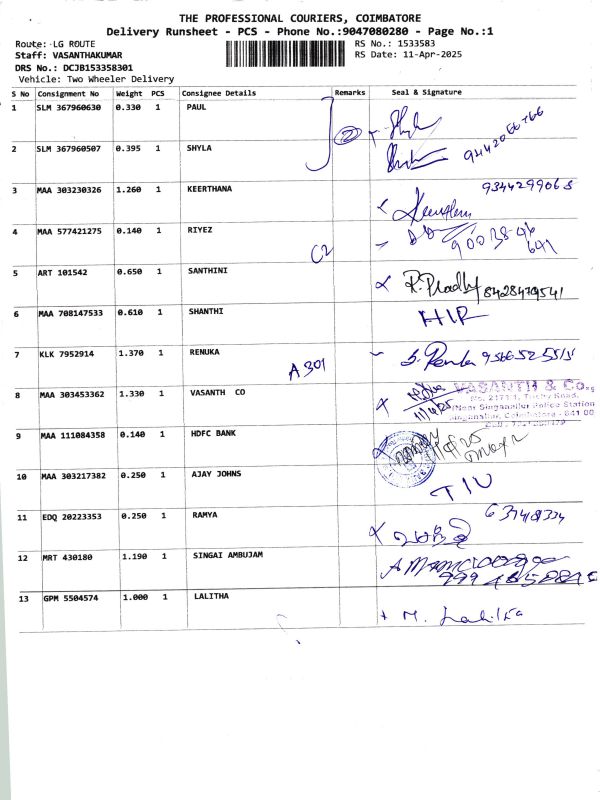 THE PROFESSIONAL COURIERS, COIMBATORE
Delivery Runsheet - PCS - Phone No.:9047080280 - Page No.:1
Route: LG ROUTE
RS No.: 1533583
Staff: VASANTHAKUMAR
RS Date: 11-Apr-2025
DRS No.: DCJB153358301
Vehicle: Two Wheeler Delivery
S No Consignment No Weight PCS Consignee Details Remarks Seal & Signature
1 SLM 367960630 0.330 1 PAUL
2 SLM 367960507 0.395 1 SHYLA
3 MAA 303230326 1.260 1 KEERTHANA
4 MAA 577421275 0.140 1 RIYEZ C2
5 ART 101542 0.650 1 SANTHINI 8428479541
6 MAA 708147533 0.610 1 SHANTHI
7 KLK 7952914 1.370 1 RENUKA A301
8 MAA 303453362 1.330 1 VASANTH CO 11/4/25 VASANTH & Co.,
9 MAA 111084358 0.140 1 HDFC BANK
10 MAA 303217382 0.250 1 AJAY JOHNS
11 EDQ 20223353 0.250 1 RAMYA
12 MRT 430180 1.190 1 SINGAI AMBUJAM
13 GPM 5504574 1.000 1 LALITHA M. Lalitha